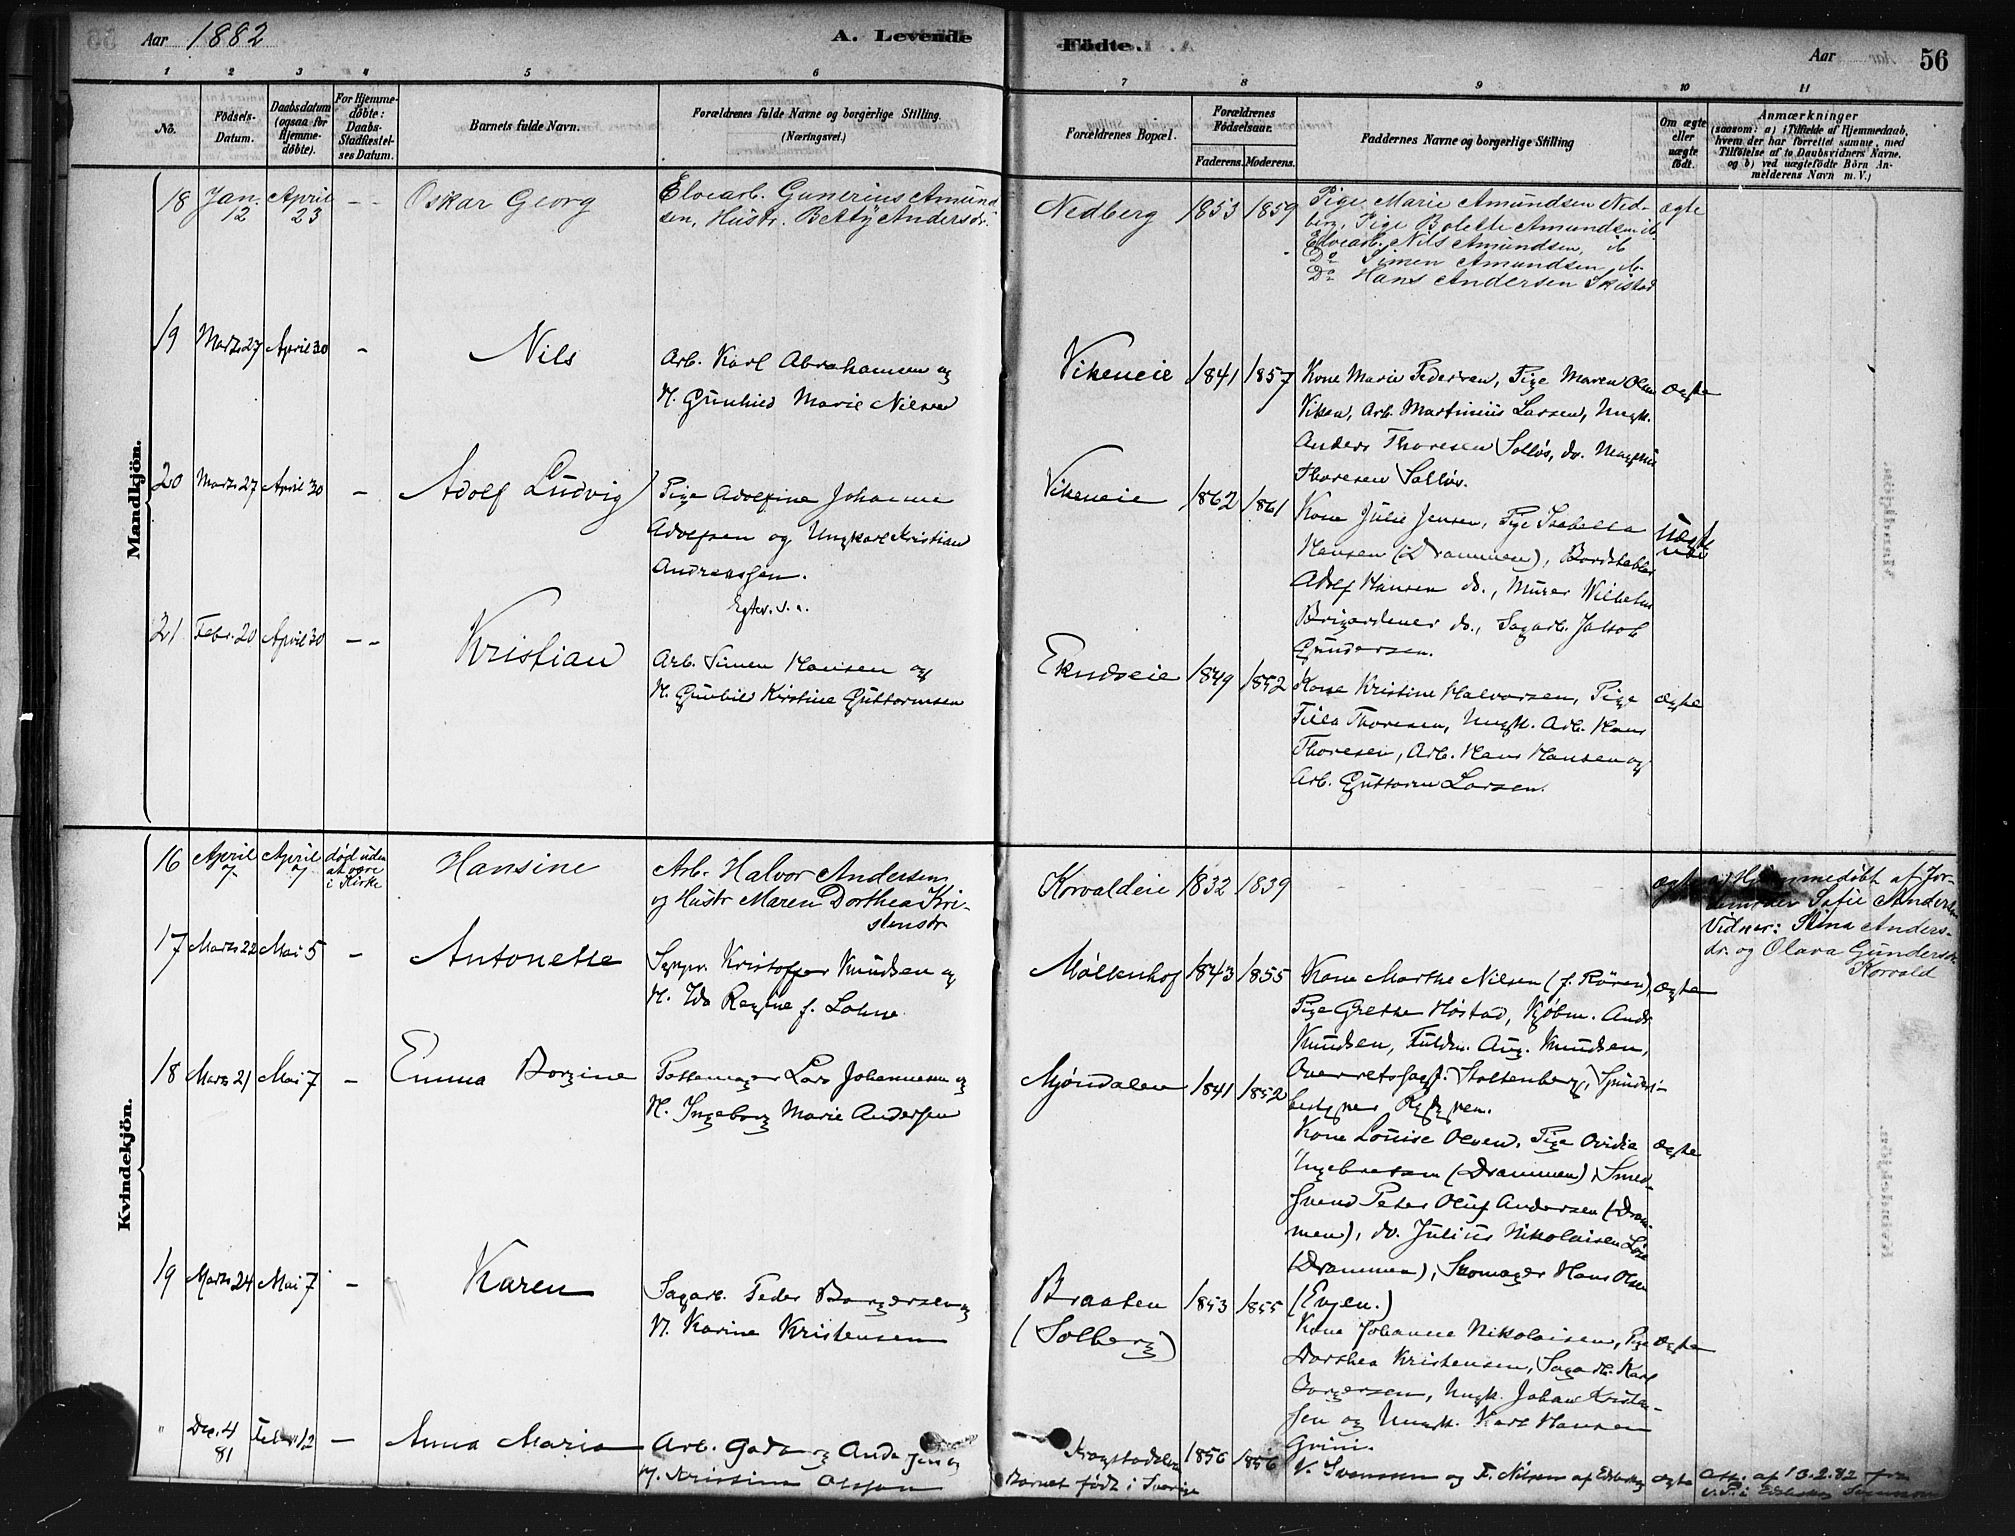 Aar 1882
A. Levende
Födte.
Aar
56
1 2 3 4 5 6 7 8 9 10 11
No.
Födsels-
Datum.
Daabsdatum
(ogsaa for
Hjemme-
døbte).
For Hjemme-
døbte:
Daabs-
Stadfæstel-
ses Datum.
Barnets fulde Navn.
Forældrenes fulde Navne og borgerlige Stilling.
(Næringsvei.)
Forældrenes Bopæl.
Forældrenes
Födselsaar.
Faderens. Moderens.
Faddernes Navne og borgerlige Stilling
Om ægte
eller
uægte
født.
Anmærkninger
(saasom: a) i Tilfælde af Hjemmedaab,
hvem der har forrettet samme, med
Tilföielse af to Daabsvidners Navne,
og b) ved uægtefödte Börn An-
melderens Navn m. V.)
Mandkjön.
18 Jan. 12 April 23 - - Oskar Georg
Elvearb. Gunerius Amund
sen, Hustr. Betty Andersdr.
Nedberg 1853 1859
Pige Marie Amundsen Ned-
berg, Pige Bolette Amundsen ib.
Elvearb. Nils Amundsen, ib
Do Simen Amundsen ib.
Do Hans Andersen Skistad
ægte
19 Marts 27 April 30 - Nils
Arb. Karl Abrahamsen og
H. Gunhild Marie Nilsen
Vikeneie 1841 1857
Kone Marie Pedersen, Pige Maren Olsen
Viken, Arb. Martinius Larsen, Ungk.
Anders Thoresen Solløs, do. Magnus
Thoresen Solløs.
ægte
20 Marts 27 April 30 - Adolf Ludvig
Pige Adolfine Johanne
Adolfsen og Ungkarl Kristian
Andreassen.
Vikeneie 1862 1861
Kone Julie Jensen, Pige Isabella
Hansen (Drammen), Bordstabler
Adolf Hansen do., Murer Wilhelm
do., Sagarb. Jakob
Gundersen.
uægte
21 Febr. 20 April 30 - - Kristian
Arb. Simen Hansen og
H. Gunhild Kirstine Guttormsen
Ekneseie 1849 1852
Kone Kristine Halvorsen, Pige
Thoresen, Ungk. Arb. Hans
Thoresen, Arb. Hans Hansen og
Arb. Guttorm Larsen.
ægte
Kvindekjön.
16 April 7 April 7 død uden
at være
i Kirke
Hansine
Arb. Halvor Andersen
og Hustr Maren Dorthea Kri-
stensdr
Korvaldeie 1832 1839
ægte
a) Hjemmedøbt af Jor-
demoder Sofie Andersen
Vidner: Stina Anders-
dr. og Olava Gundersdr.
Korvald
17 Marts 22 Mai 5 - Antonette
Kristoffer Knudsen og
H. Ida Regine f. Lohne
Møllenhof 1843 1855
Kone Marthe Nilsen (f. Rören),
Pige Grethe Høstad, Kjøbm. Andr.
Knudsen, Fuldm. Aug. Knudsen,
Overretssagf. Stoltenberg,
ægte
18 Marts 21 Mai 7 - Emma Borgine
Pottemager Lars Johannesen og
H. Ingeborg Marie Andersen
Mjøndalen 1841 1852
Kone Louise Olsen, Pige Ovidia
Ingebretsen (Drammen), Smed-
svend Peter Oluf Andersen (Dram-
men), do. Julius Nikolaisen
(Drammen), Skomager Hans Olsen
(Evjen.)
ægte
19 Marts 24 Mai 7 - Karen
Sagarb. Peder Borgersen og
H. Karine Kristensen
Braaten 1853 1855
(Solberg)
Kone Johanne Nikolaisen, Pige
Dorthea Kristensen, Sagarb. Karl
Borgersen, Ungk. Johan Kristen-
sen og Ungk. Karl Hansen
Grini.
ægte
" Dec. 4
81
Febr. 12 - Anna Maria
Arb. Andersen og
H. Kristina Olsson
Krogstadelven 1856 1856
Barnet født i Sverige
V. Svensson og F. Nilsson af
ægte
Att. af 13.2.82 fra